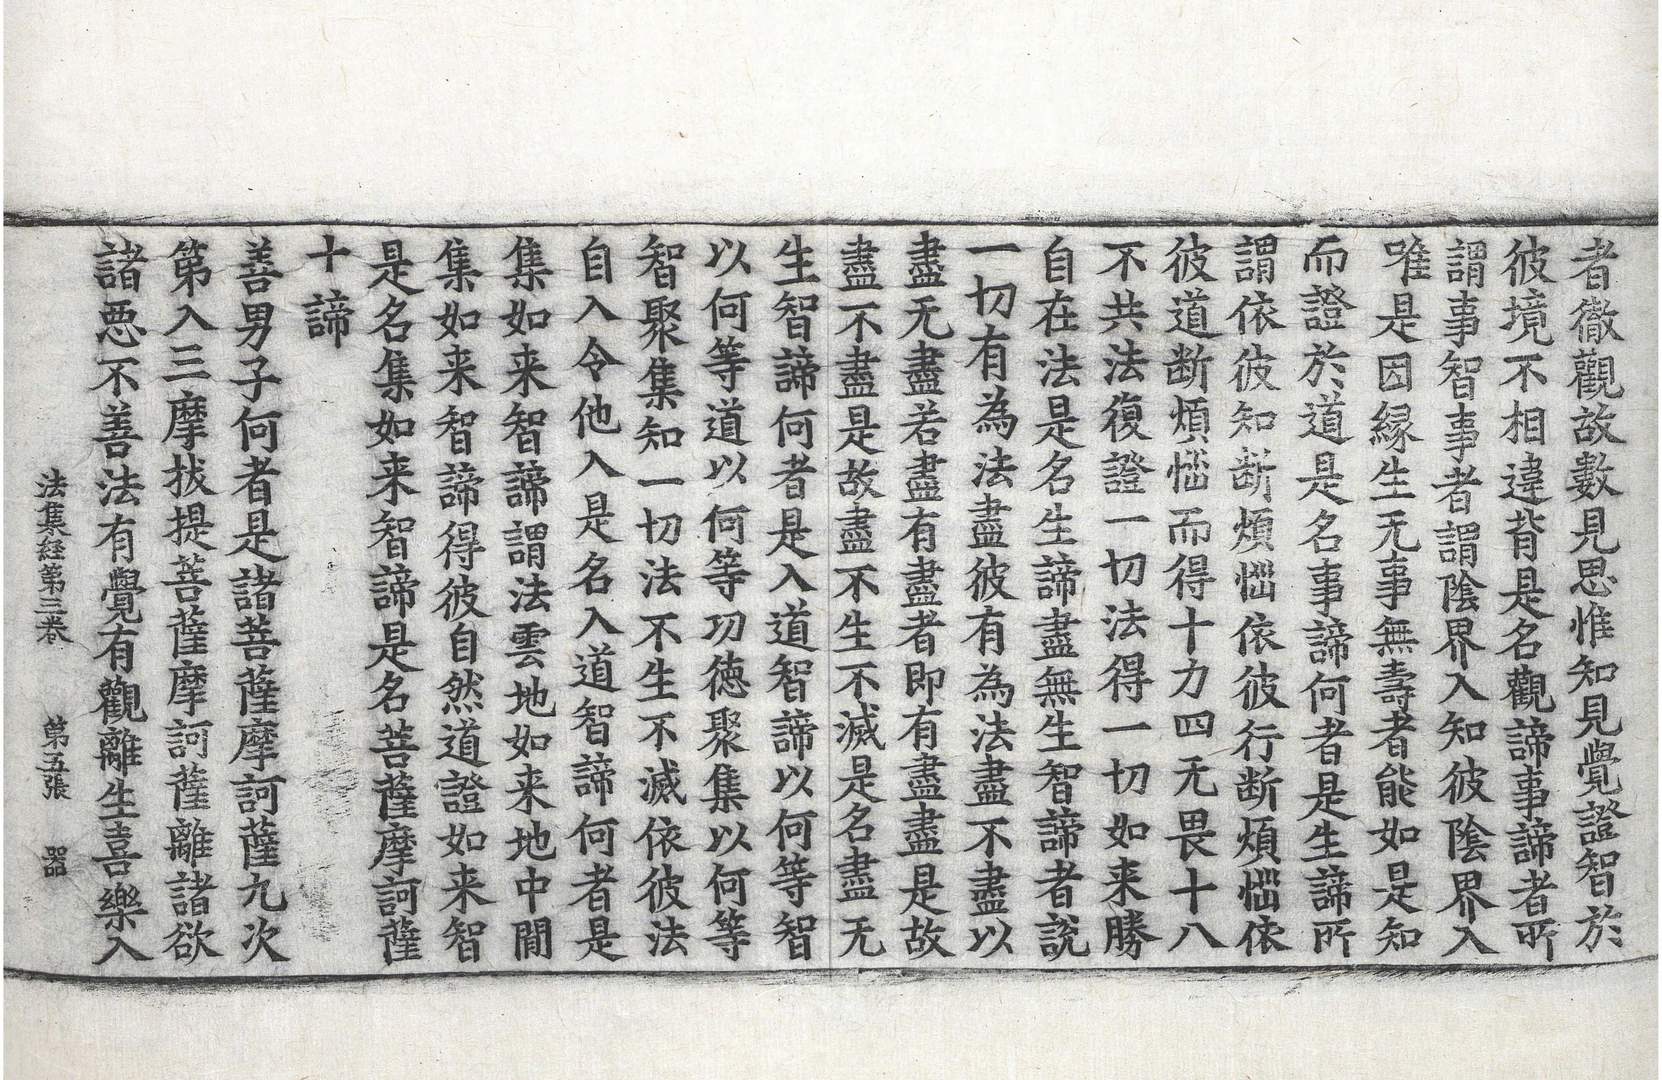 者徹觀故數見思惟知見覺證智於
彼境不相違背是名觀諦事諦者所
謂事智事者謂陰界入知彼陰界入
唯是因縁生无事無壽者能如是知
而證於道是名事諦何者是生諦所
謂依彼知断煩惱依彼行断煩惱依
彼道断煩惱而得十力四无畏十八
不共法復證一切法得一切如来勝
自在法是名生諦盡無生智諦者說
一切有為法盡彼有為法盡不盡以
盡无盡若盡有盡者即有盡盡是故
盡不盡是故盡不生不滅是名盡无
生智諦何者是入道智諦以何等智
以何等道以何等功徳聚集以何等
智聚集知一切法不生不滅依彼法
自入令他入是名入道智諦何者是
集如来智諦謂法雲地如来地中間
集如来智諦得彼自然道證如来智
是名集如来智諦是名菩薩摩訶薩
十諦
善男子何者是諸菩薩摩訶薩九次
第入三摩拔提菩薩摩訶薩離諸欲
諸惡不善法有覺有觀離生喜樂入
法集経第三巻 第五張 器